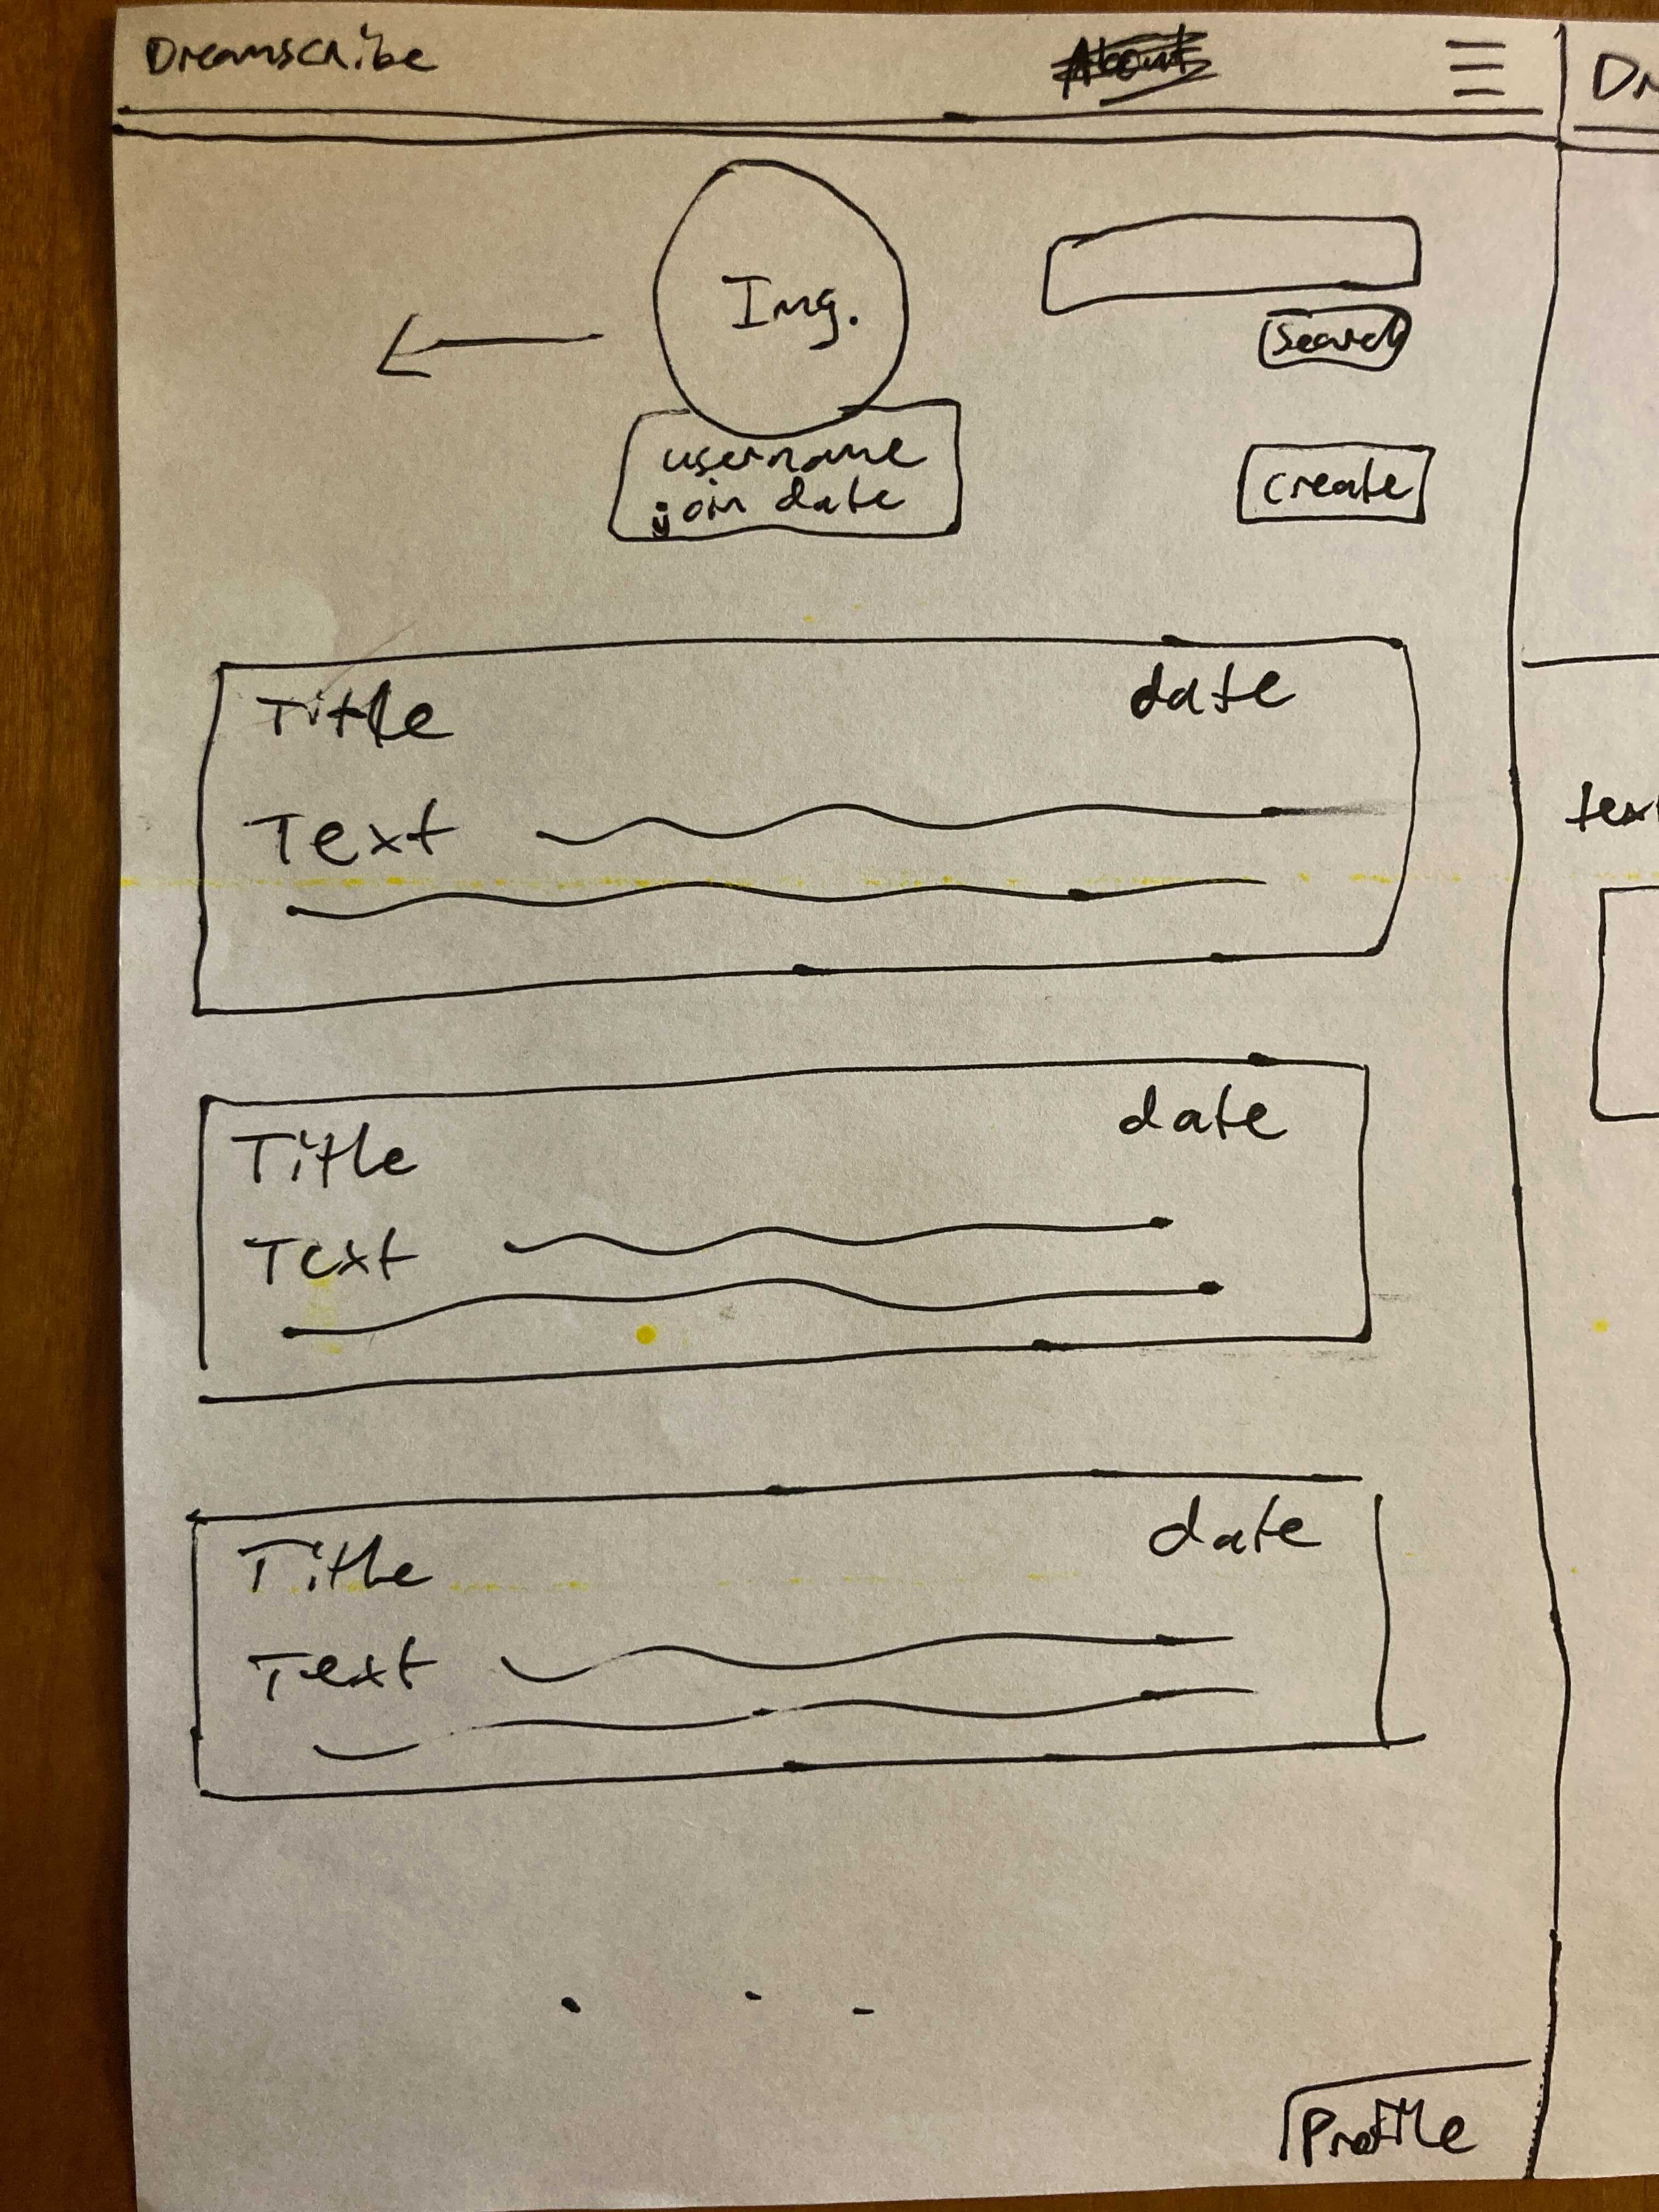 Dreamscribe
Img.
search
username
join date
create
Title date
Text
Title date
Text
Title date
Text
Profile
text